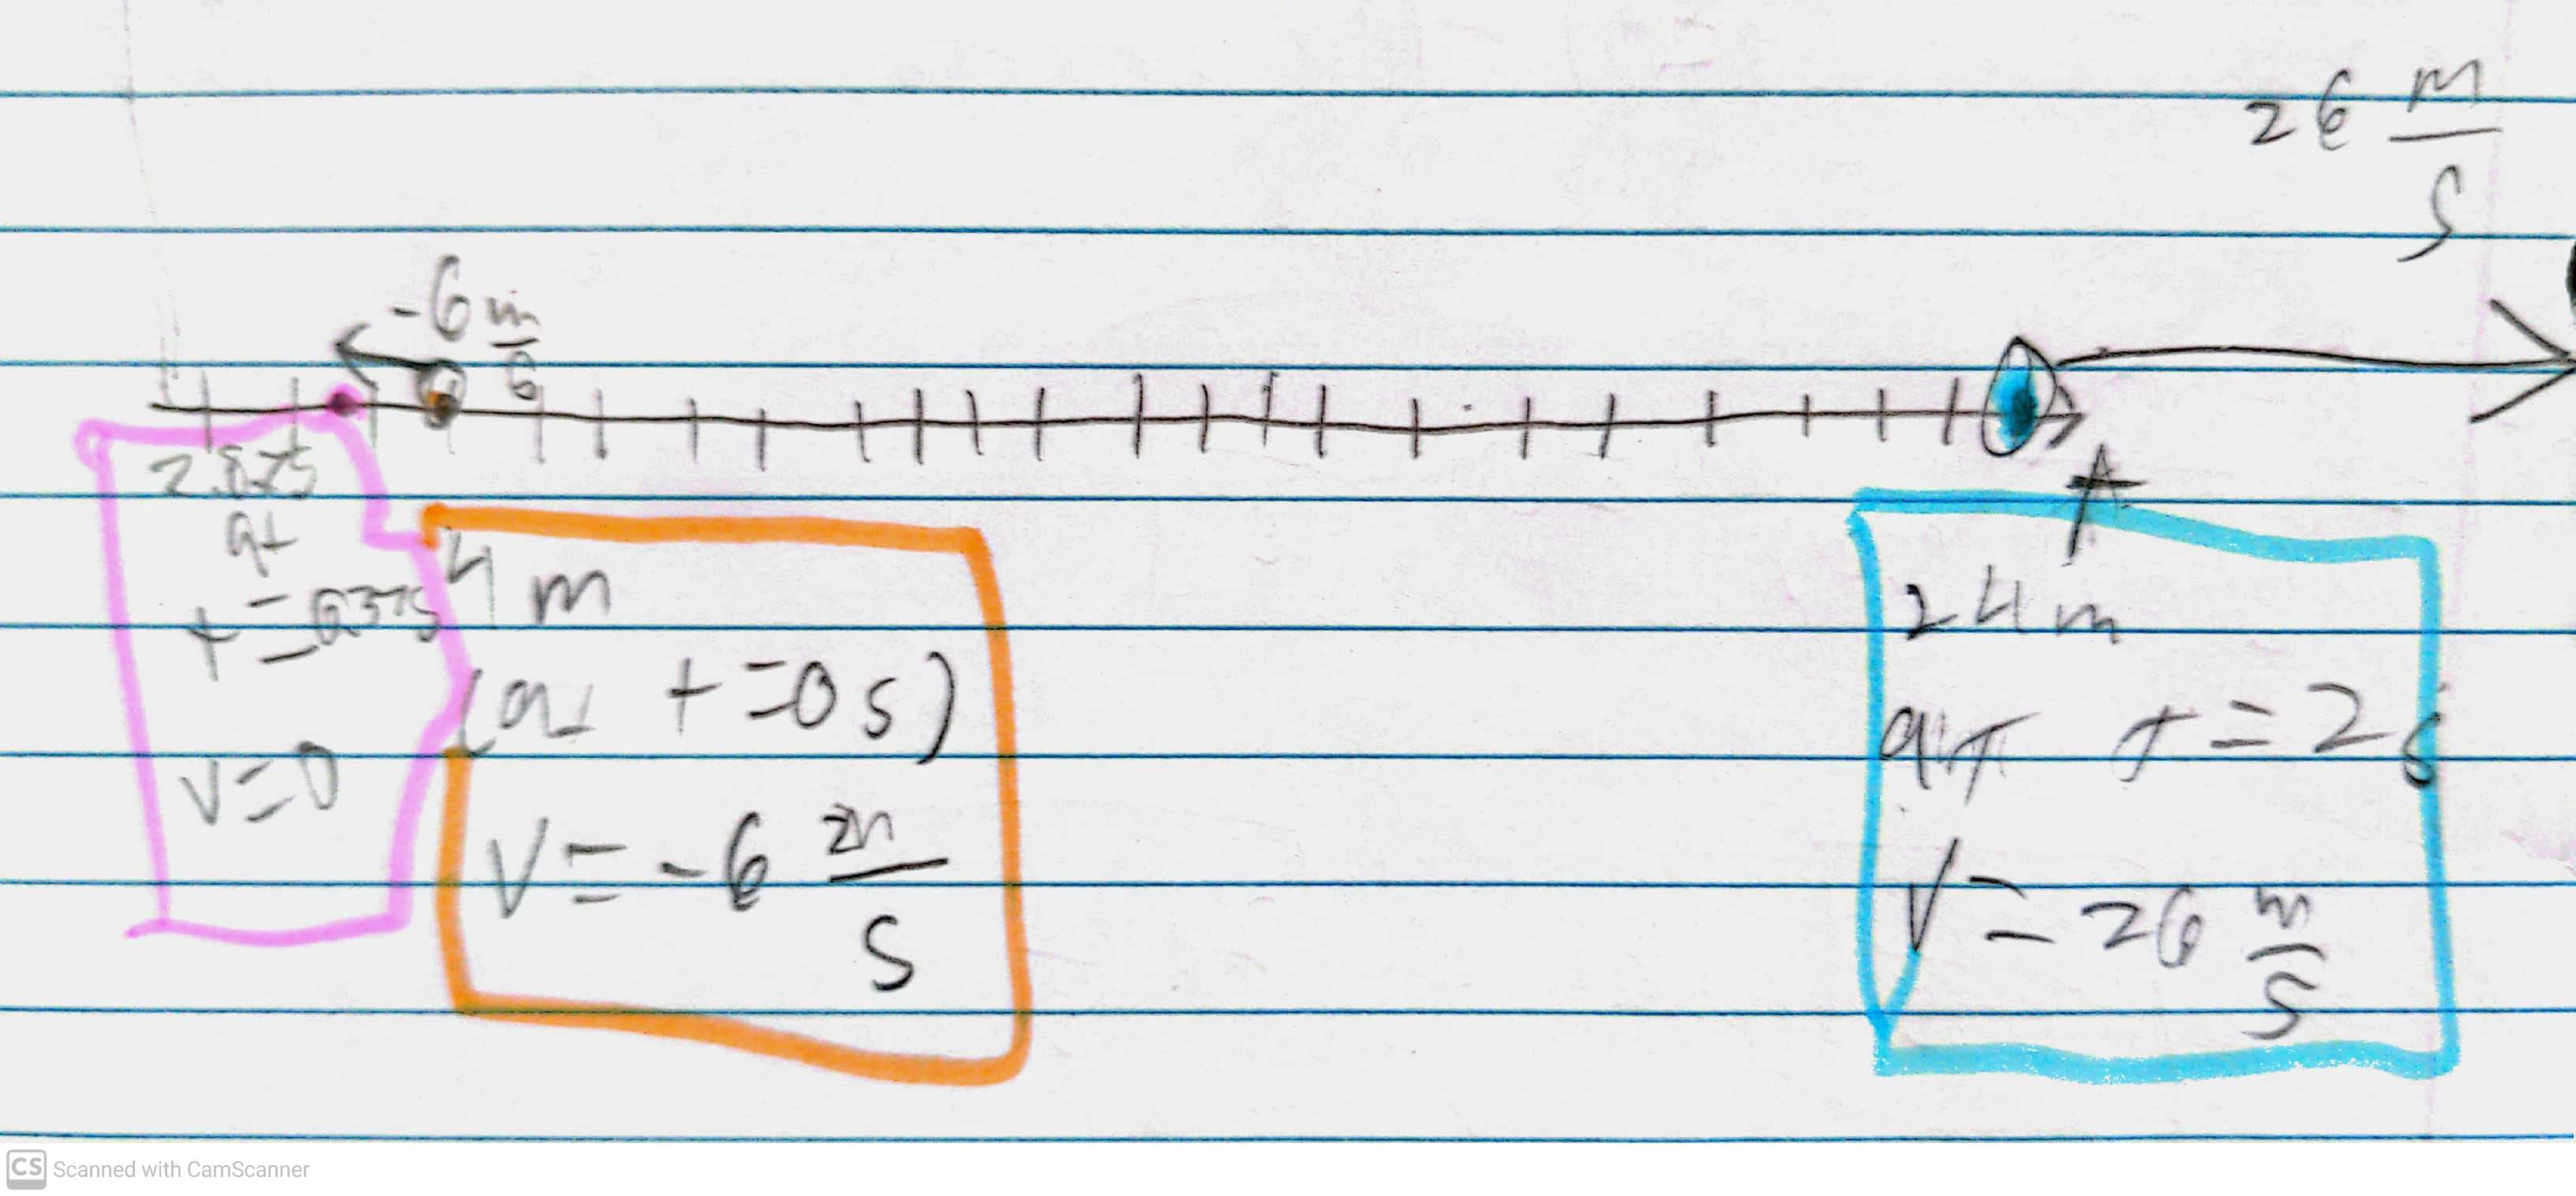 26 m
s
-6 m
s
x
2.875
at
t=0.375
v=0
4 m
(at t=0s)
V=-6 m
s
24m
at t=2s
V=26 m
s
CS Scanned with CamScanner